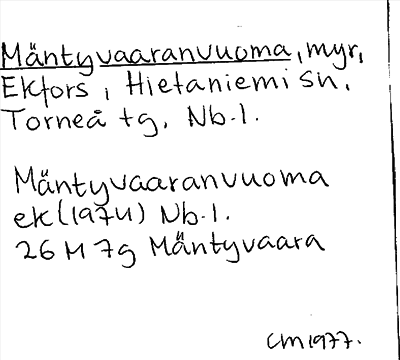 Mäntyvaaranvuoma, myr,
Ekfors, Hietaniemi sn,
Torneå tg, Nb.l.
Mäntyvaaranvuoma
ek (1974) Nb.l.
26 M 7g Mäntyvaara
CM 1977.